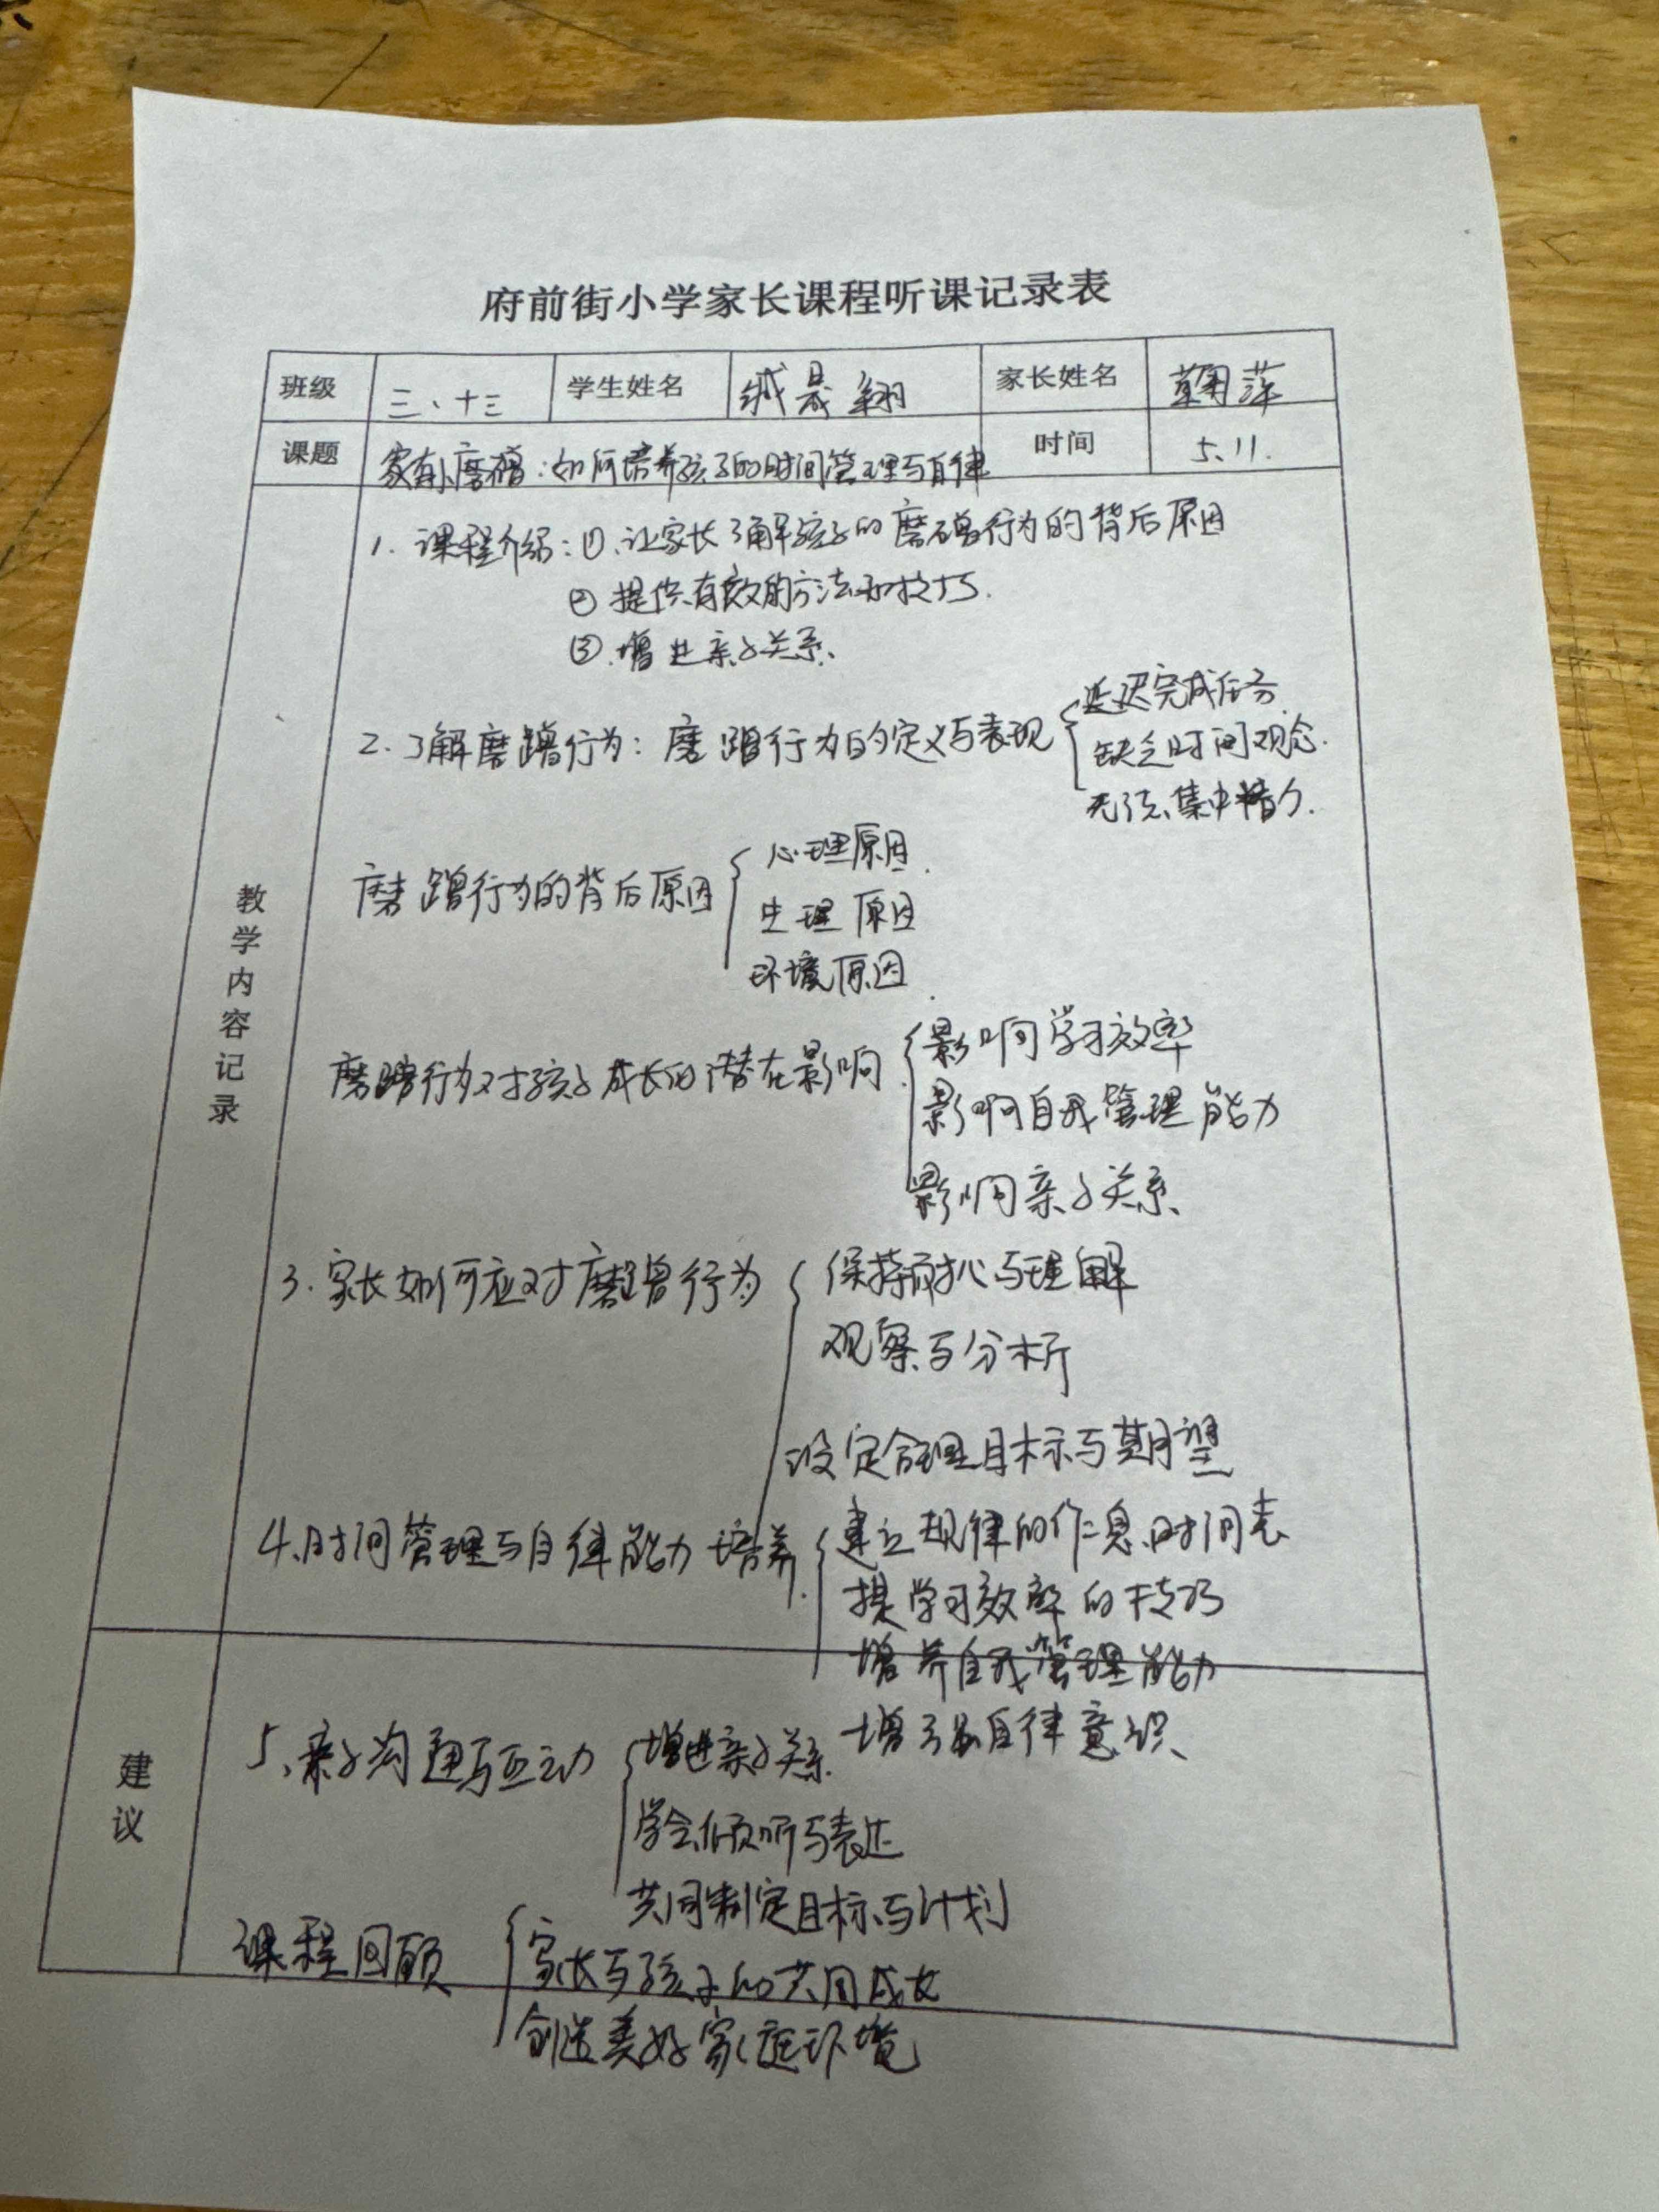 府前街小学家长课程听课记录表
班级 三、十三 学生姓名 晟翔 家长姓名 萍
课题 家有小磨蹭:如何培养孩子的时间管理与自律 时间 5.11.
教学内容记录
1. 课程介绍:①、让家长了解孩子的磨蹭行为的背后原因
② 提供有效的方法和技巧.
③.增进亲子关系、
2.了解磨蹭行为:磨蹭行为的定义与表现
延迟完成任务.
缺乏时间观念.
无法集中精力.
磨蹭行为的背后原因
心理原因.
生理原因
环境原因.
磨蹭行为对孩子成长的潜在影响
影响学习效率
影响自我管理能力
影响亲子关系、
3.家长如何应对磨蹭行为
保持耐心与理解
观察与分析
设定合理目标与期望
4.时间管理与自律能力培养.
建立规律的作息时间表
提学习效率的技巧
增养自我管理能力
增强自律意识、
建议
5、亲子沟通与互动
增进亲子关系.
学会倾听与表达
共同制定目标与计划
课程回顾
家长与孩子的共同成长
创造美好家庭环境